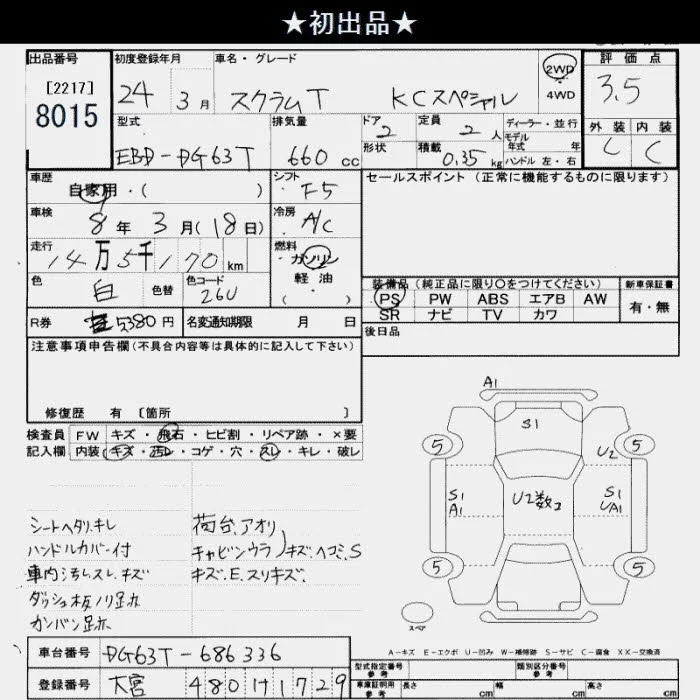 ★初出品★
出品番号
[2217]
8015
初度登録年月
24 3 月
車名・グレード
スクラムT KCスペシャル
2WD
4WD
評価点
3.5
型式
EBD-DG63T
排気量
660 cc
ドア
2
形状
定員
2 人
積載
0.35 kg
ディーラー・並行
モデル
年式 年
ハンドル 左・右
外装 内装
C C
車歴
自家用・( )
シフト
F5
車検
8 年 3 月(18日)
冷房
A/C
走行
14万5千170 km
燃料
ガソリン
軽油
( )
色
白
色替
色コード
26U
R券
5380円
名変通知期限 月 日
セールスポイント(正常に機能するものに限ります)
装備品(純正品に限り○をつけてください)
PS PW ABS エアB AW
SR ナビ TV カワ
新車保証書
有・無
後日品
注意事項申告欄(不具合内容等は具体的に記入して下さい)
修復歴 有 〔箇所 〕
検査員 FW キズ・飛石・ヒビ割・リペア跡・×要
記入欄 内装(キズ・汚レ・コゲ・穴・スレ・キレ・破レ
シートヘタリ.キレ
ハンドルカバー付
車内汚レスレ.キズ
ダッシュ板ノリ跡
カンバン跡
荷台.アオリ
キャビンウラ)キズ.ヘコミ.S
キズ.E.スリキズ.
A1
S1
5 5
U2
S1
A1
U2数コ
S1
UA1
5 5
スペア
A-キズ E-エクボ U-凹み W-補修跡 S-サビ C-腐食 XX-交換済
車台番号 DG63T-686336
登録番号 大宮 480 け 1729
型式指定番号
参考
類別区分番号
参考
車庫証明用
参考
長さ cm 幅 cm 高さ cm